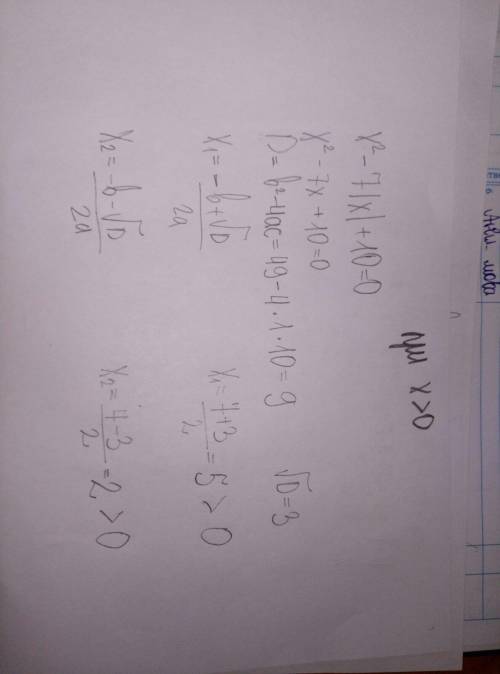 x² - 7|x| + 10 = 0 при x > 0
x² - 7x + 10 = 0
D = b² - 4ac = 49 - 4 · 1 · 10 = 9 √D = 3
x₁ = (-b + √D) / 2a x₁ = (7 + 3) / 2 = 5 > 0
x₂ = (-b - √D) / 2a x₂ = (7 - 3) / 2 = 2 > 0